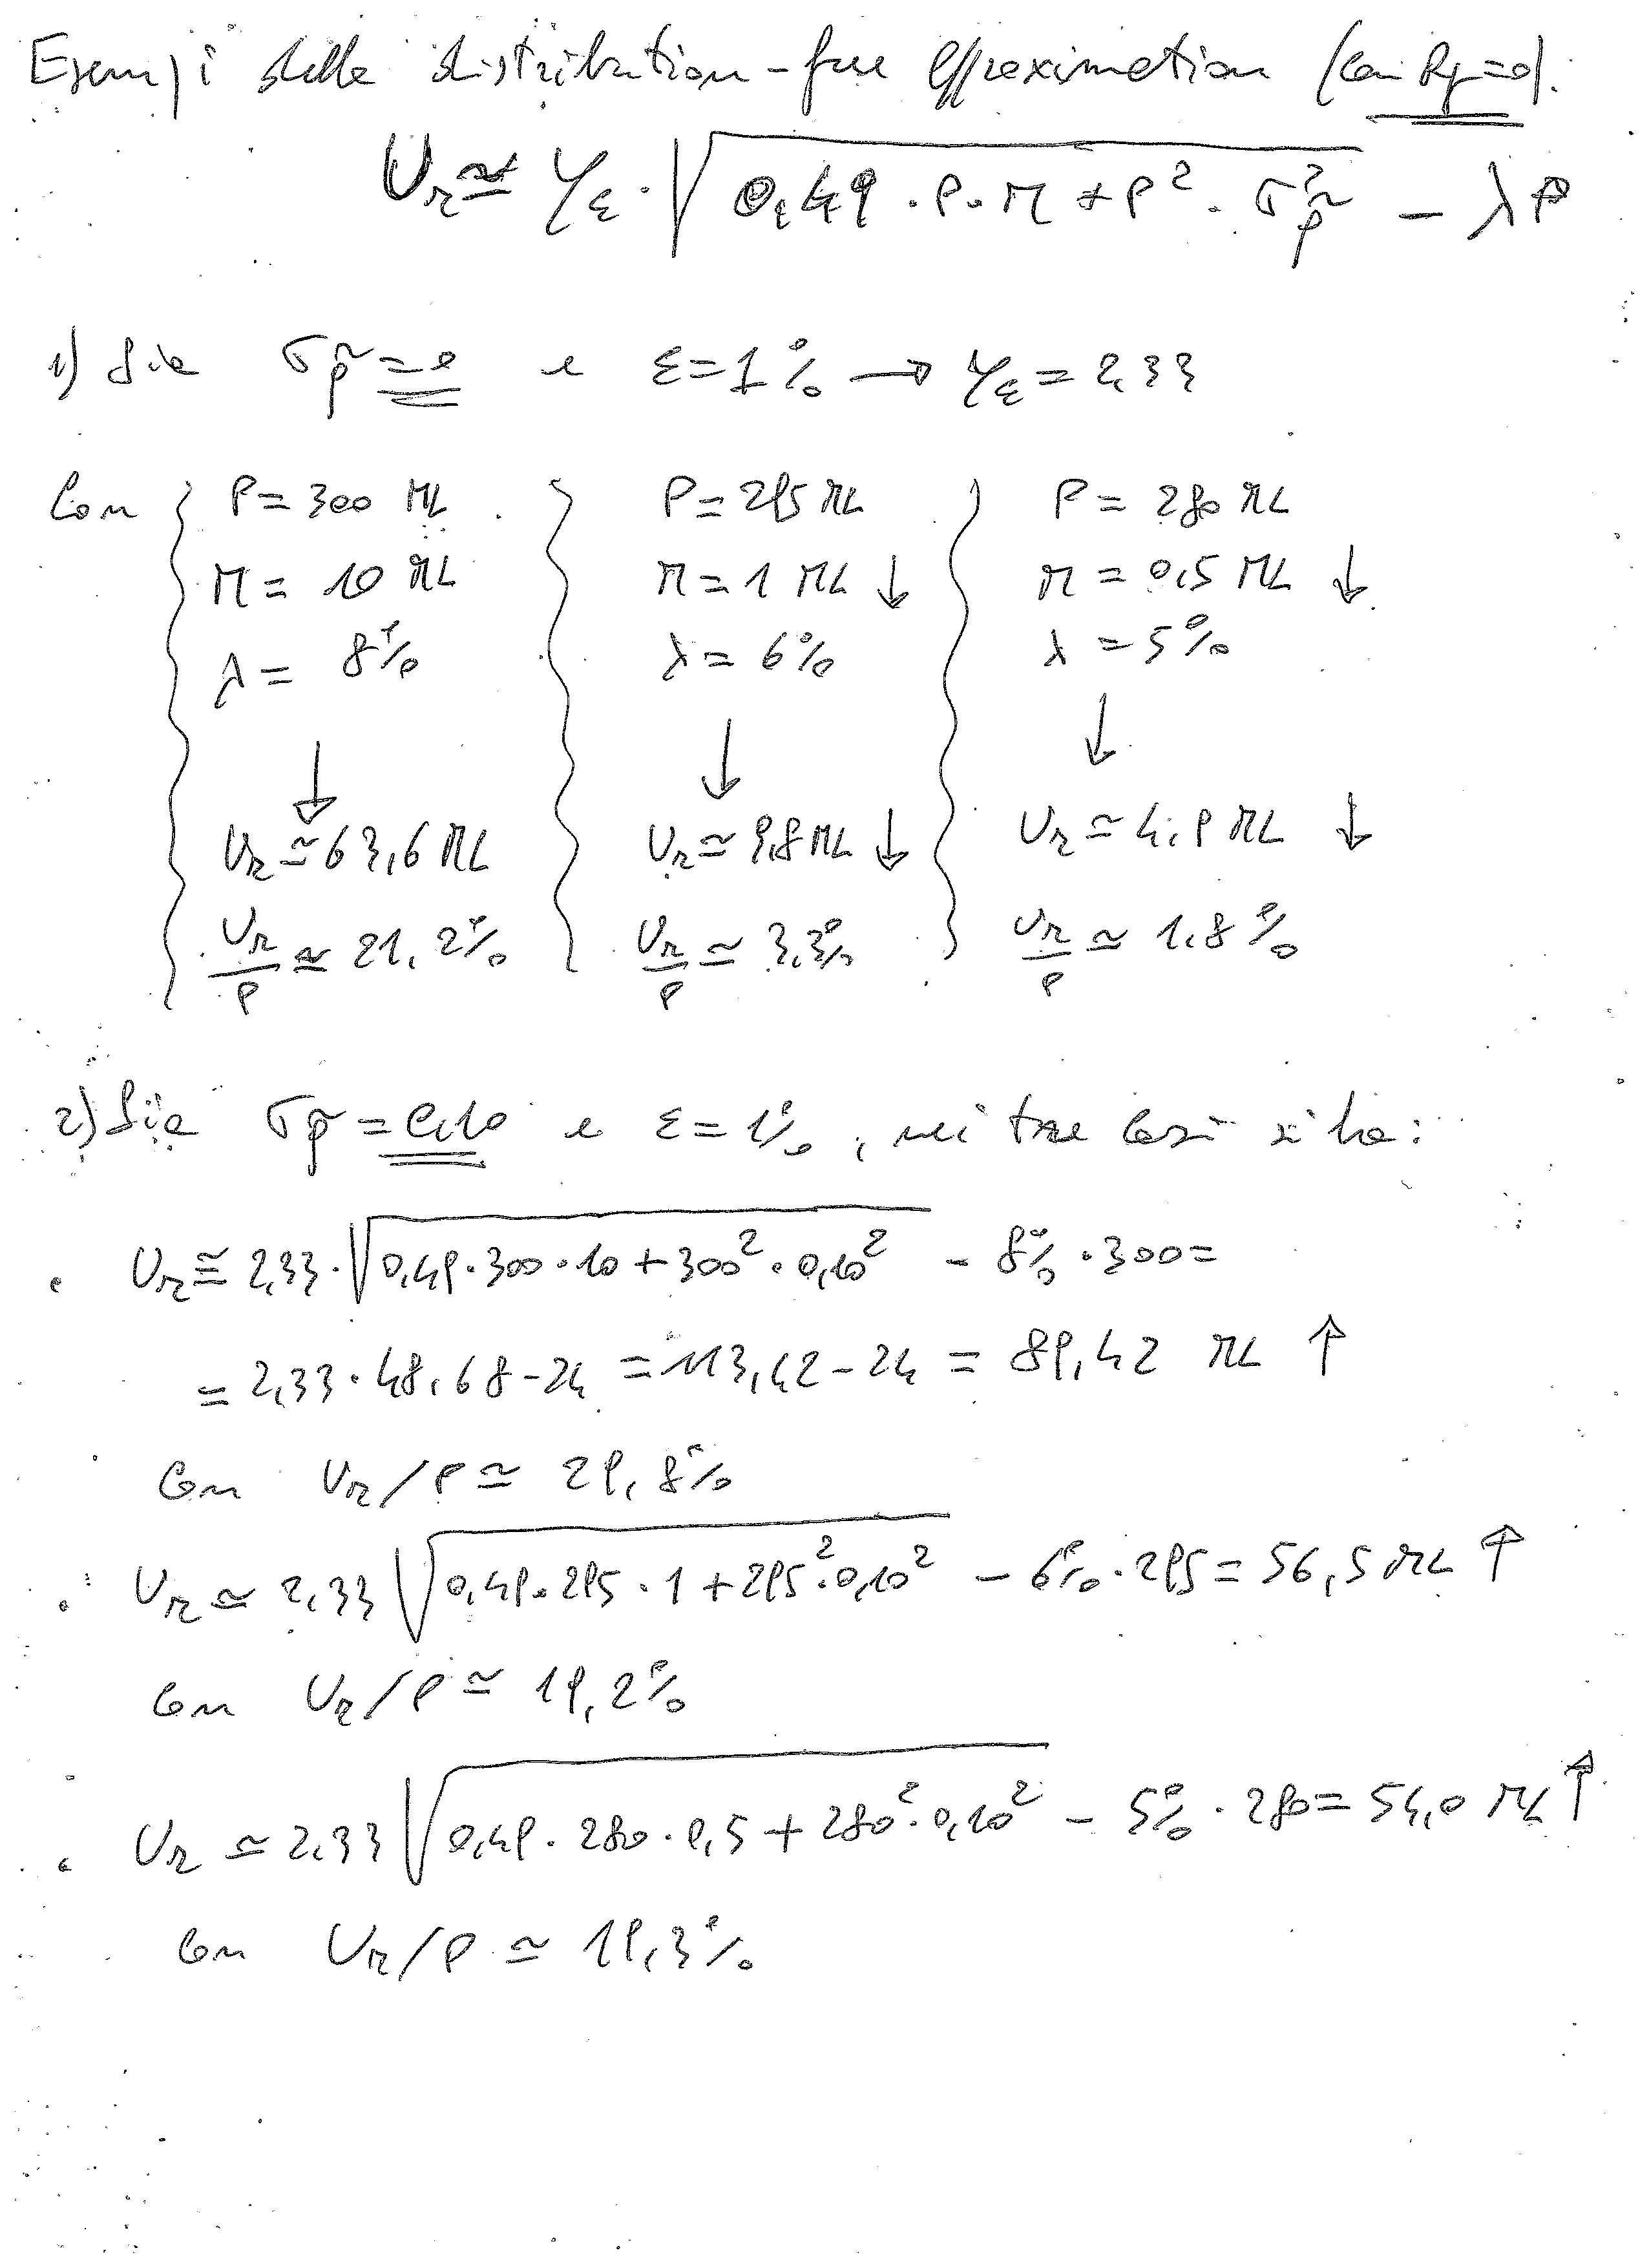 Esempi della distribution-free approximation (con Rf=0).
Ur ≃ yε · √(0,49 · P · M + P² · σ²p̃) − λP
1) Sia σp̃ = 0 e ε = 1% → yε = 2,33
Con { P = 300 ML P = 295 ML P = 280 ML
M = 10 ML M = 1 ML ↓ M = 0,5 ML ↓
λ = 8% λ = 6% λ = 5%
↓ ↓ ↓
Ur ≃ 63,6 ML Ur ≃ 9,8 ML ↓ Ur ≃ 4,9 ML ↓
Ur/P ≃ 21,2% Ur/P ≃ 3,3% Ur/P ≃ 1,8%
2) Sia σp̃ = 0,10 e ε = 1%, nei tre casi si ha:
• Ur ≅ 2,33 · √(0,49 · 300 · 10 + 300² · 0,10²) − 8% · 300 =
= 2,33 · 48,68 − 24 = 113,42 − 24 = 89,42 ML ↑
Con Ur/P ≃ 29,8%
• Ur ≃ 2,33 √(0,49 · 295 · 1 + 295² · 0,10²) − 6% · 295 = 56,5 ML ↑
Con Ur/P ≃ 19,2%
• Ur ≃ 2,33 √(0,49 · 280 · 0,5 + 280² · 0,10²) − 5% · 280 = 54,0 ML ↑
Con Ur/P ≃ 19,3%